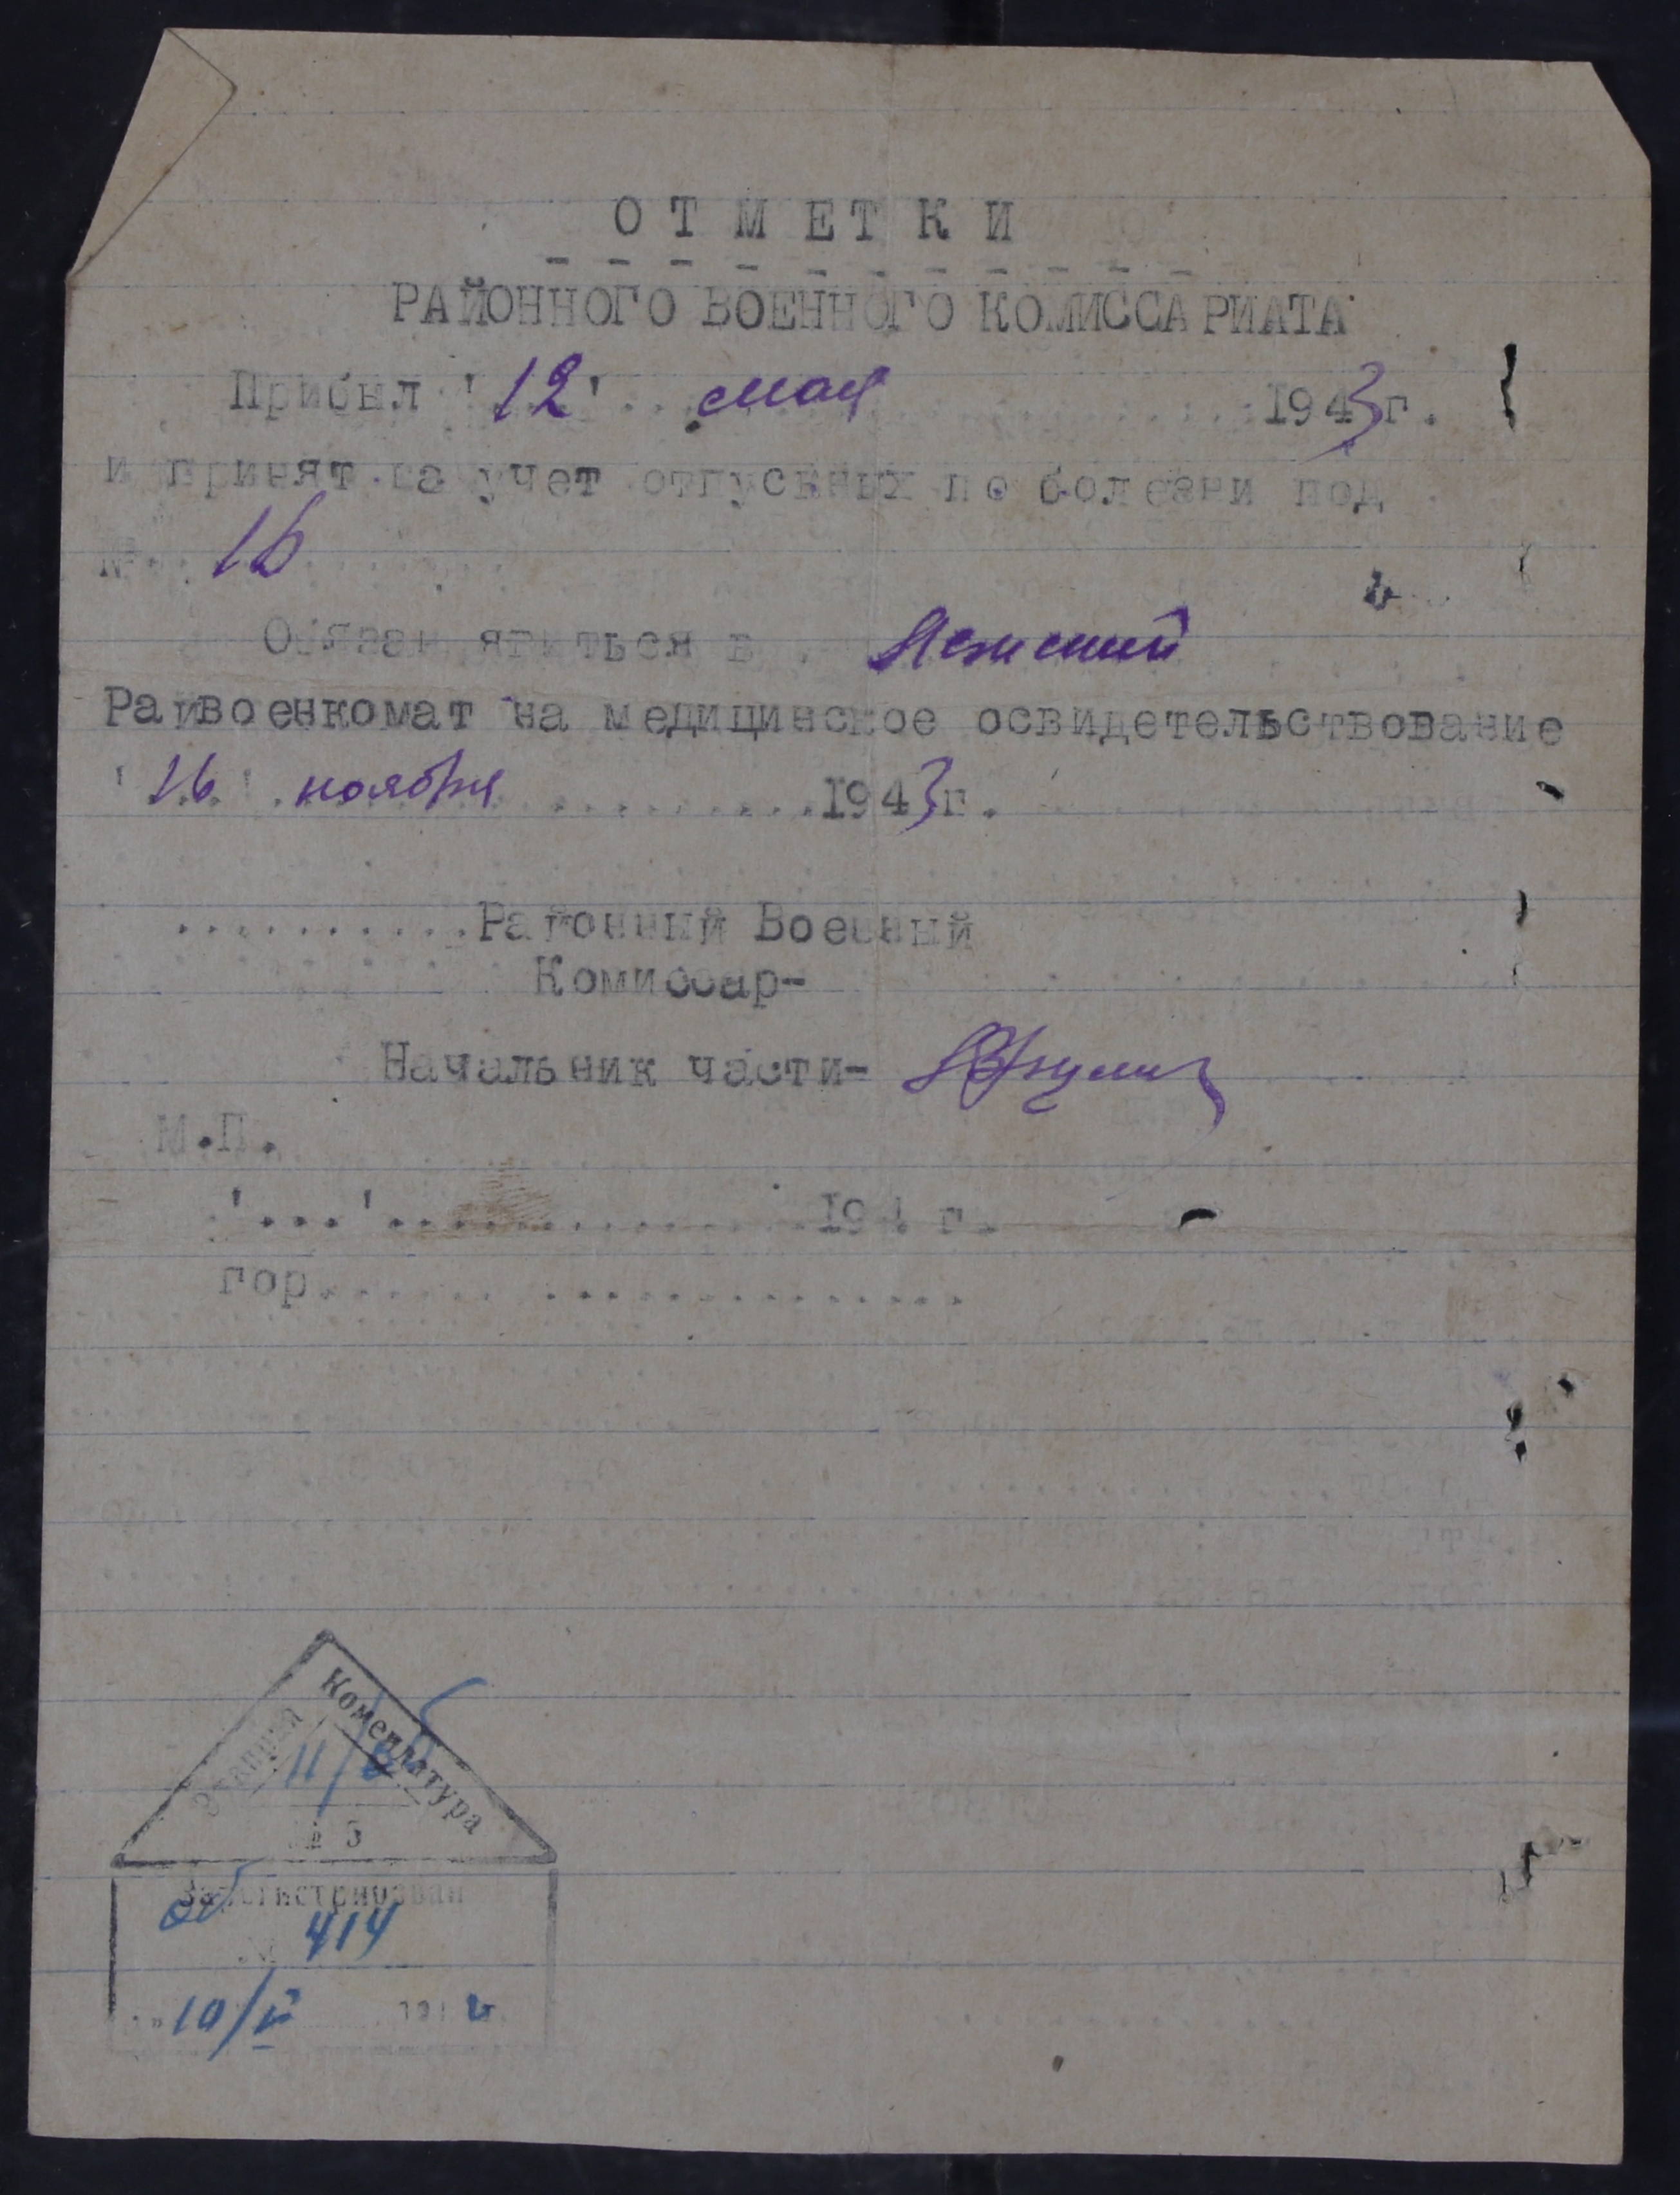 ОТМЕТКИ
РАЙОННОГО ВОЕННОГО КОМИССАРИАТА
Прибыл "12" мая 1943 г.
и принят на учет отпускных по болезни под
№ 16
Обязан явиться в
Райвоенкомат на медицинское освидетельствование
"16" ноября 1943 г.
Районный Военный
Комиссар-
Начальник части-
М.П.
"..." 194 г.
гор.
Этапная Комендатура
11/
№ 3
Зарегистрирован
№ 414
"10/V 194 г.